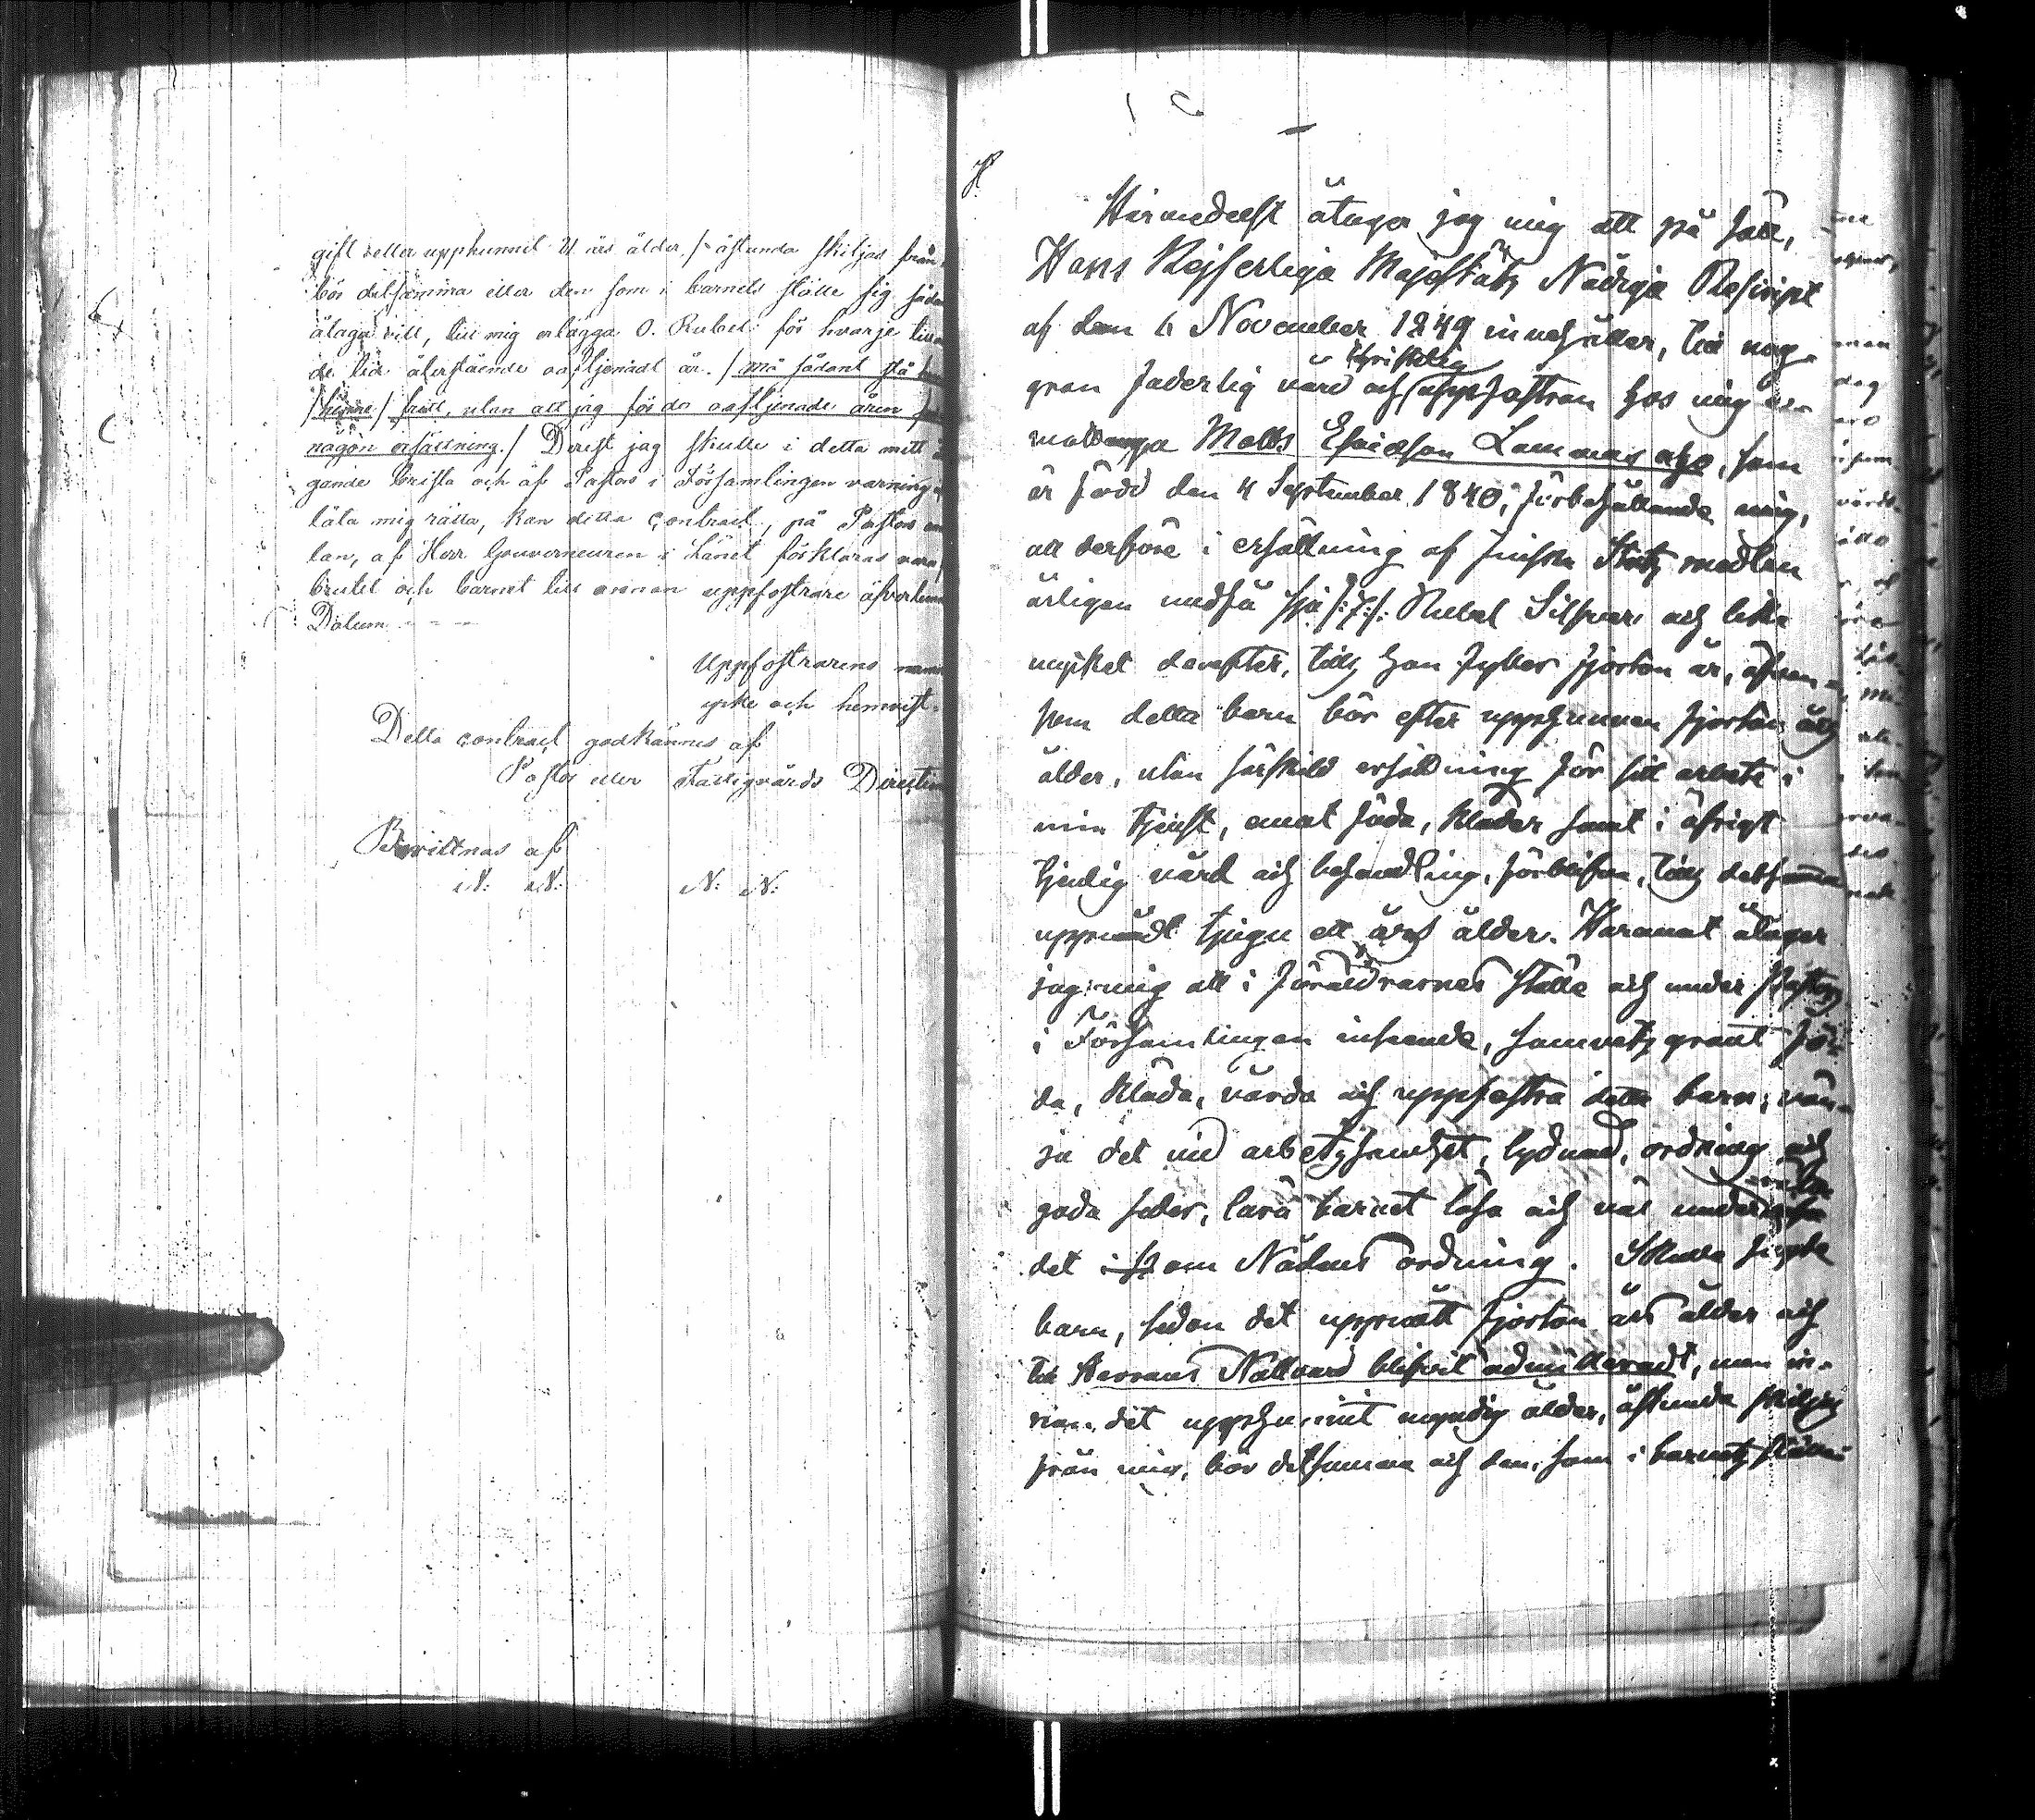 gift eller upphunnit 21 års ålder, /- åstunda skiljas från
bör detsamma eller den som i barnets ställe sig sådan
åtaga vill, till mig erlägga 0. Rubel för hvarje till
de tid återstående oaftjenadt år. / må sådant stå
/ henne / fritt, utan att jag för de oaftjenade åren
någon ersättning. / Derest jag skulle i detta mitt å
gande brista och af Pastor i Församlingen varning ej
låta mig rätta, kan detta contract, på Pastors an
lan, af Herr Gouverneuren i Länet förklaras vara
brutet och barnet till annan uppfostrare öfverlemn
Datum - - -
Uppfostrarens namn
yrke och hemvist.
Detta contract godkännes af
Pastor eller Fattigvårds Direction
Bevittnas af
N: N: N: N:
Härmedelst åtager jag mig att på sätt,
Hans Kejserliga Majestäts Nådiga Rescript
af den 6 November 1849 innehåller, till nog-
gran faderlig vård och christelig uppfostran hos mig em-
mottaga Matts Esaiasson Lammasaho, som
är född den 4 September 1840, förbehållande mig,
att derföre i ersättning af Finska Stats medlen
årligen undfå sju /:7:/ Rubel Silfver och lika
mycket derefter, tills han fyller fjorton år, äfven-
som detta barn bör efter upphunnen fjorton års
ålder, utan särskild ersättning för sitt arbete i
min tjenst, emot föda, kläder samt i öfrigt
tjenlig vård och behandling, förblifva, tills detsamma
uppnådt tjugu ett års ålder. Häremot åtager
jag mig att i föräldrarnes ställe och under Pastors
i Församlingen inseende, samvets grant fö-
da, kläda, vårda och uppfostra detta barn, vän-
ja det vid arbetsamhet, lydnad, ordning och
goda seder, lära barnet läsa och väl under
det i om Nådens ordning. Skulle
barn, sedan det uppnått fjorton års ålder och
till Herrans Nattvard blifvit admitteradt, men in-
nan det upphunnit myndig ålder, åstunda skiljas
från mig, bör detsamma och den, som i barnets ställe